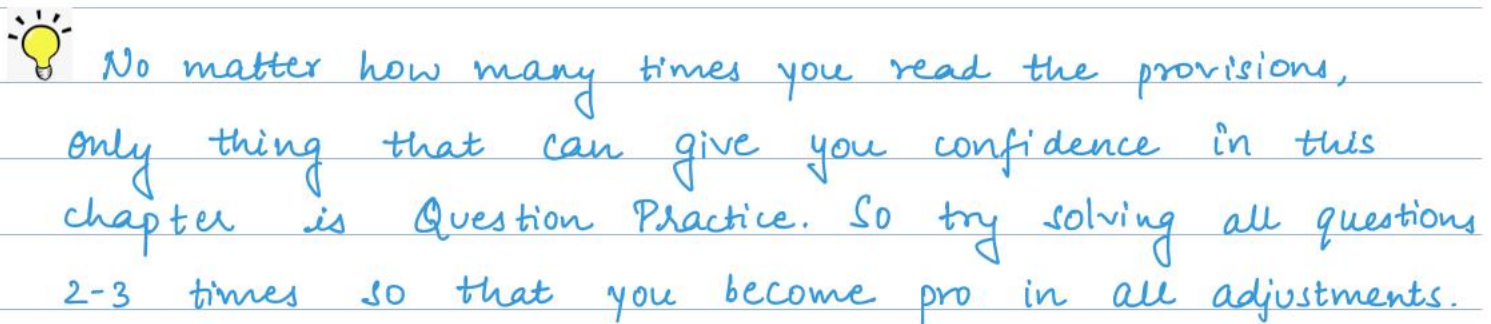 No matter how many times you read the provisions,
only thing that can give you confidence in this
chapter is Question Practice. So try solving all questions
2-3 times so that you become pro in all adjustments.